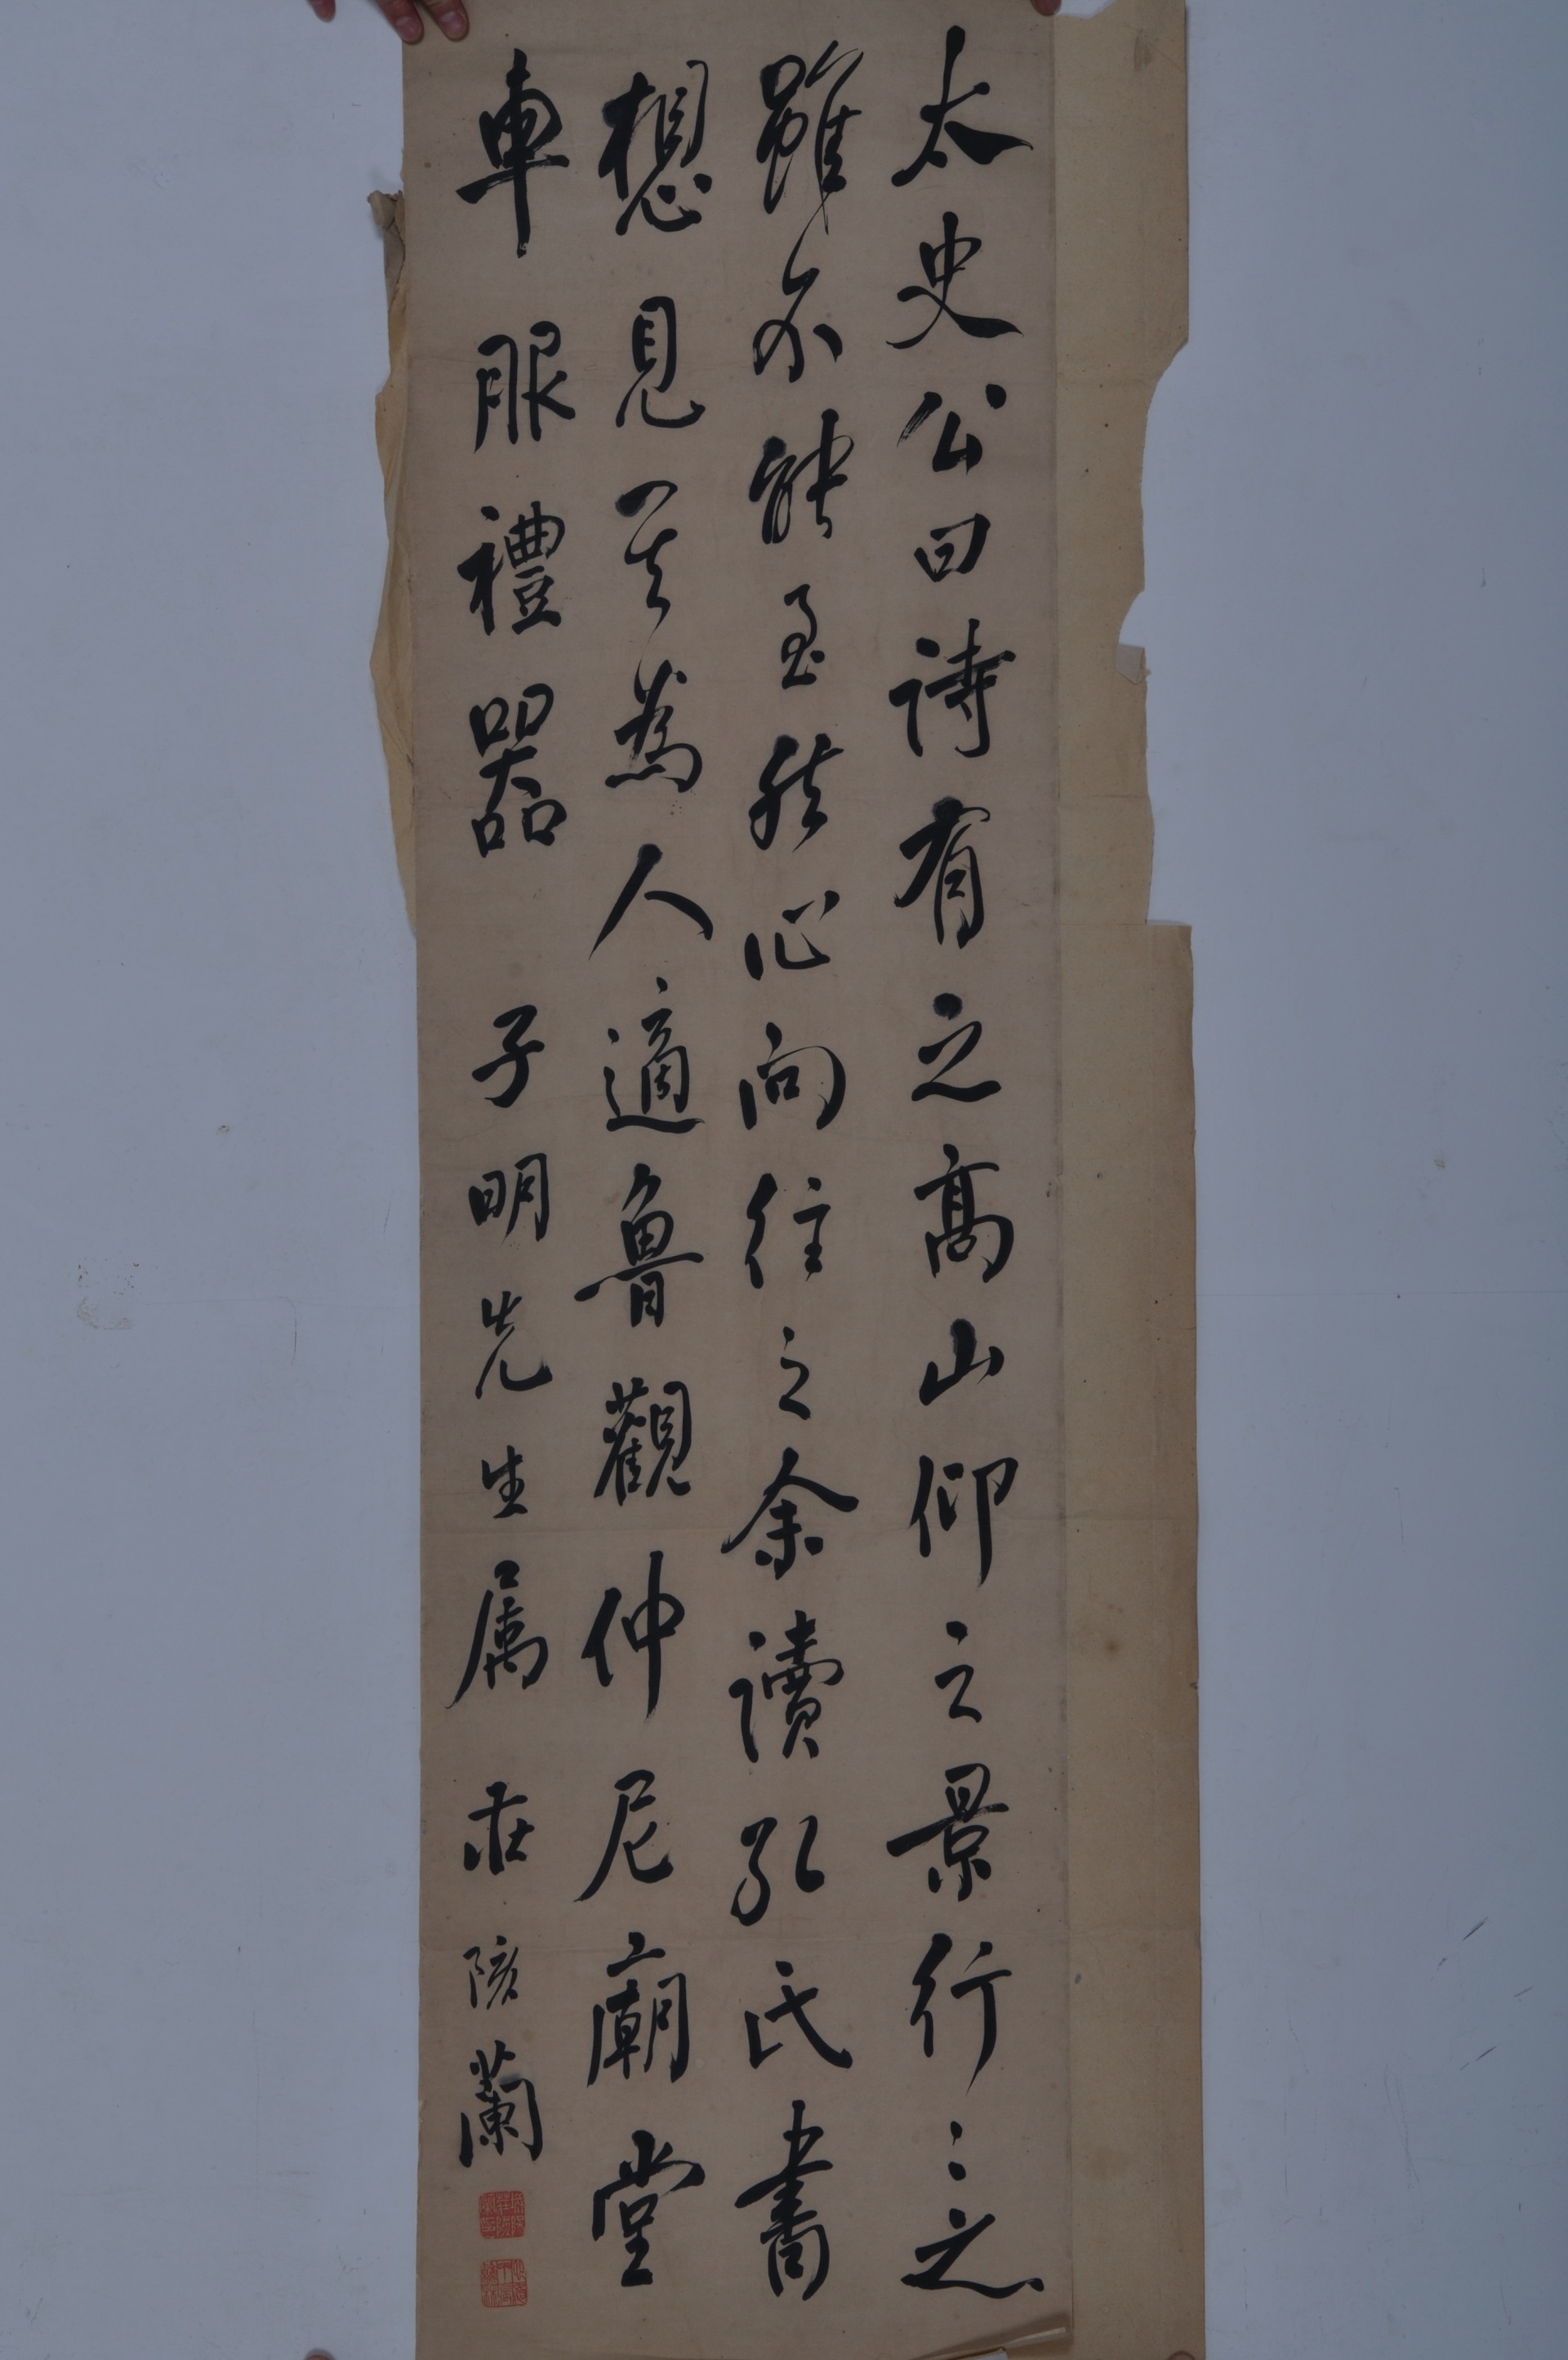 太史公曰詩有之高山仰之景行〻之
雖不能至然心向往之余讀孔氏書
想見其為人適魯觀仲尼廟堂
車服禮器 子明先生属 莊陔蘭